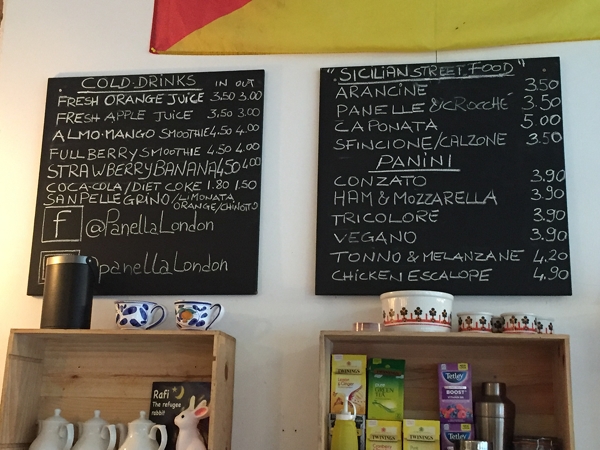 COLD DRINKS IN OUT
FRESH ORANGE JUICE 3.50 3.00
FRESH APPLE JUICE 3.50 3.00
ALMO-MANGO SMOOTHIE 4.50 4.00
FULL BERRY SMOOTHIE 4.50 4.00
STRAWBERRY BANANA 4.50 4.00
COCA-COLA/DIET COKE 1.80 1.50
SANPELLEGRINO/LIMONATA
ORANGE/CHINOTTO
f @PanellaLondon
@panellaLondon
"SICILIAN STREET FOOD"
ARANCINE 3.50
PANELLE & CROCCHÉ 3.50
CAPONATA 5.00
SFINCIONE/CALZONE 3.50
PANINI
CONZATO 3.90
HAM & MOZZARELLA 3.90
TRICOLORE 3.90
VEGANO 3.90
TONNO & MELANZANE 4.20
CHICKEN ESCALOPE 4.90
Rafi
The refugee
rabbit
TWININGS
GREEN TEA
Tetley
BOOST
TWININGS
TWININGS
Tetley